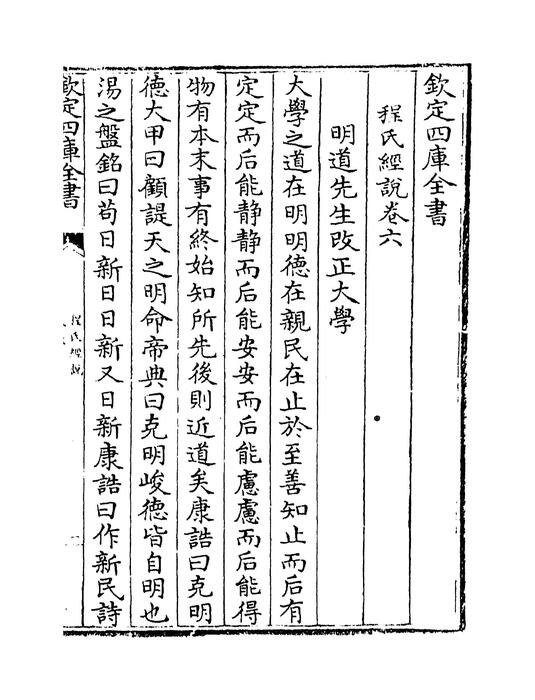 欽定四庫全書
程氏經說卷六
明道先生改正大學
大學之道在明明德在親民在止於至善知止而后有
定定而后能静静而后能安安而后能慮慮而后能得
物有本末事有終始知所先後則近道矣康誥曰克明
德大甲曰顧諟天之明命帝典曰克明峻德皆自明也
湯之盤銘曰苟日新日日新又日新康誥曰作新民詩
欽定四庫全書
程氏經說